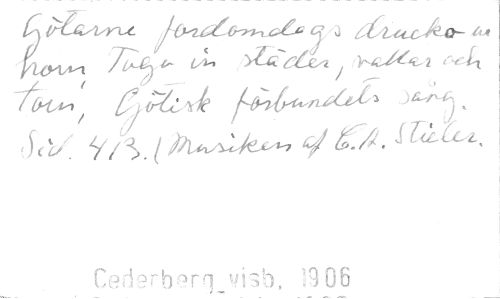 Götarne fordomdags drucko ur
horn, Togo in städer, vallar och
torn, Götisk förbundets sång.
Sid. 413. (Musiken af C. A. Stieler.
Cederberg_visb, 1906